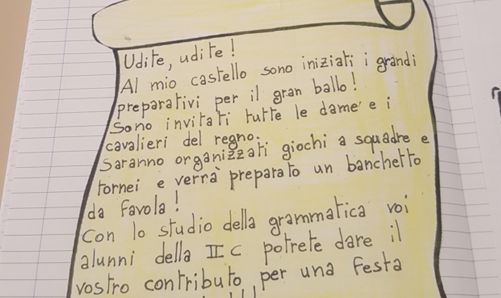 Udite, udite!
Al mio castello sono iniziati i grandi
preparativi per il gran ballo!
Sono invitati tutte le dame e i
cavalieri del regno.
Saranno organizzati giochi a squadre e
tornei e verrà preparato un banchetto
da favola!
Con lo studio della grammatica voi
alunni della II C potrete dare il
vostro contributo per una festa